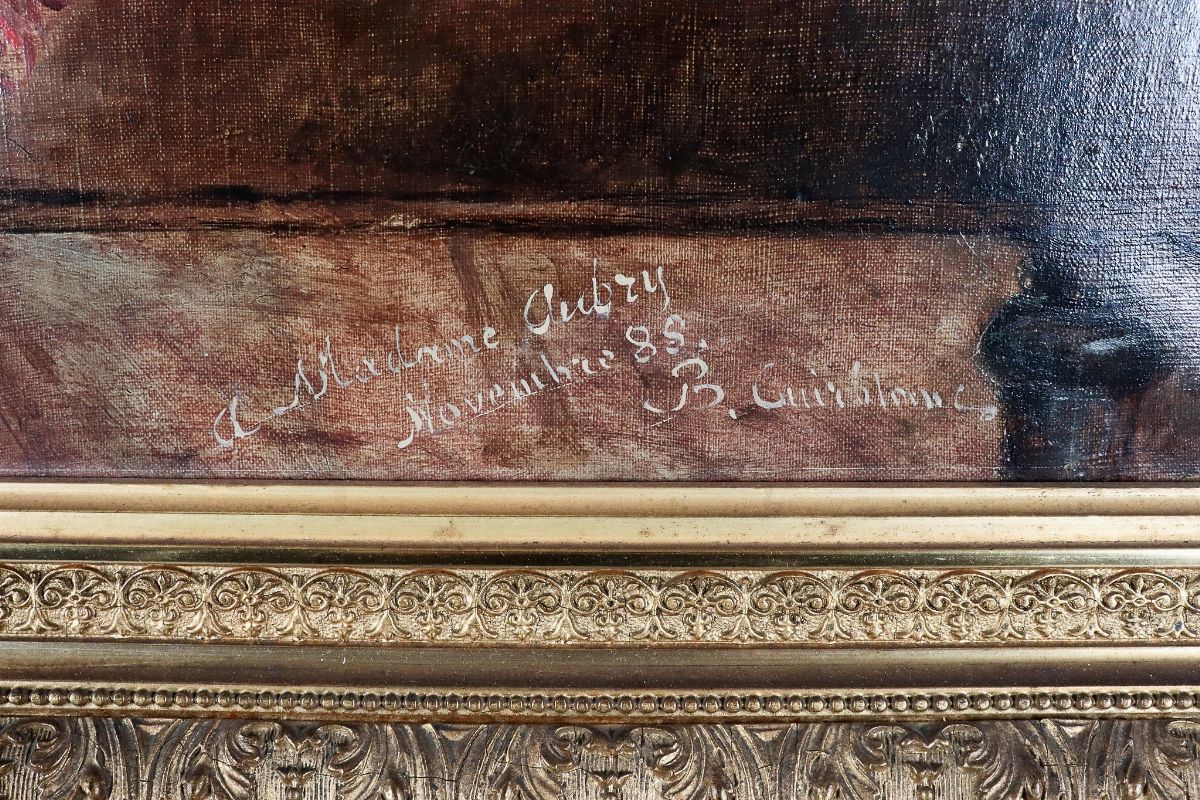 A Madame Aubry
Novembre 88.
B. Cuirblanc.